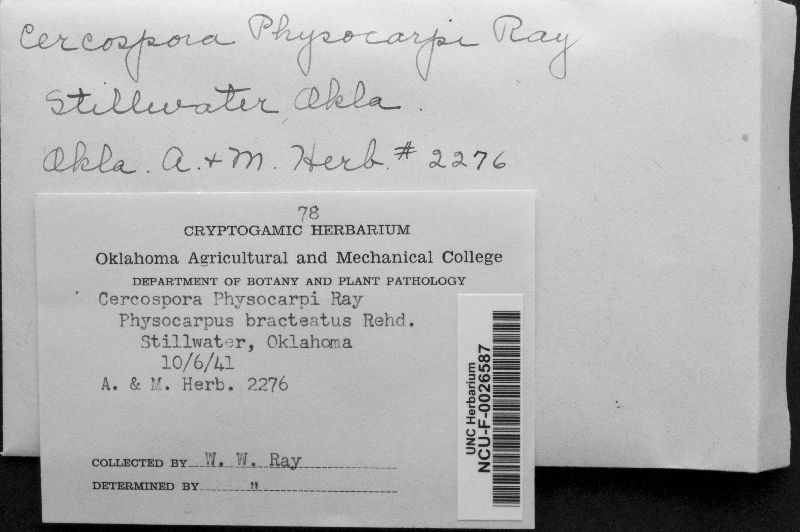 Cercospora Physocarpi Ray
Stillwater, Okla.
Okla. A. & M. Herb. # 2276
78
CRYPTOGAMIC HERBARIUM
Oklahoma Agricultural and Mechanical College
DEPARTMENT OF BOTANY AND PLANT PATHOLOGY
Cercospora Physocarpi Ray
Physocarpus bracteatus Rehd.
Stillwater, Oklahoma
10/6/41
A. & M. Herb. 2276
COLLECTED BY W. W. Ray
DETERMINED BY "
UNC Herbarium
NCU-F-0026587